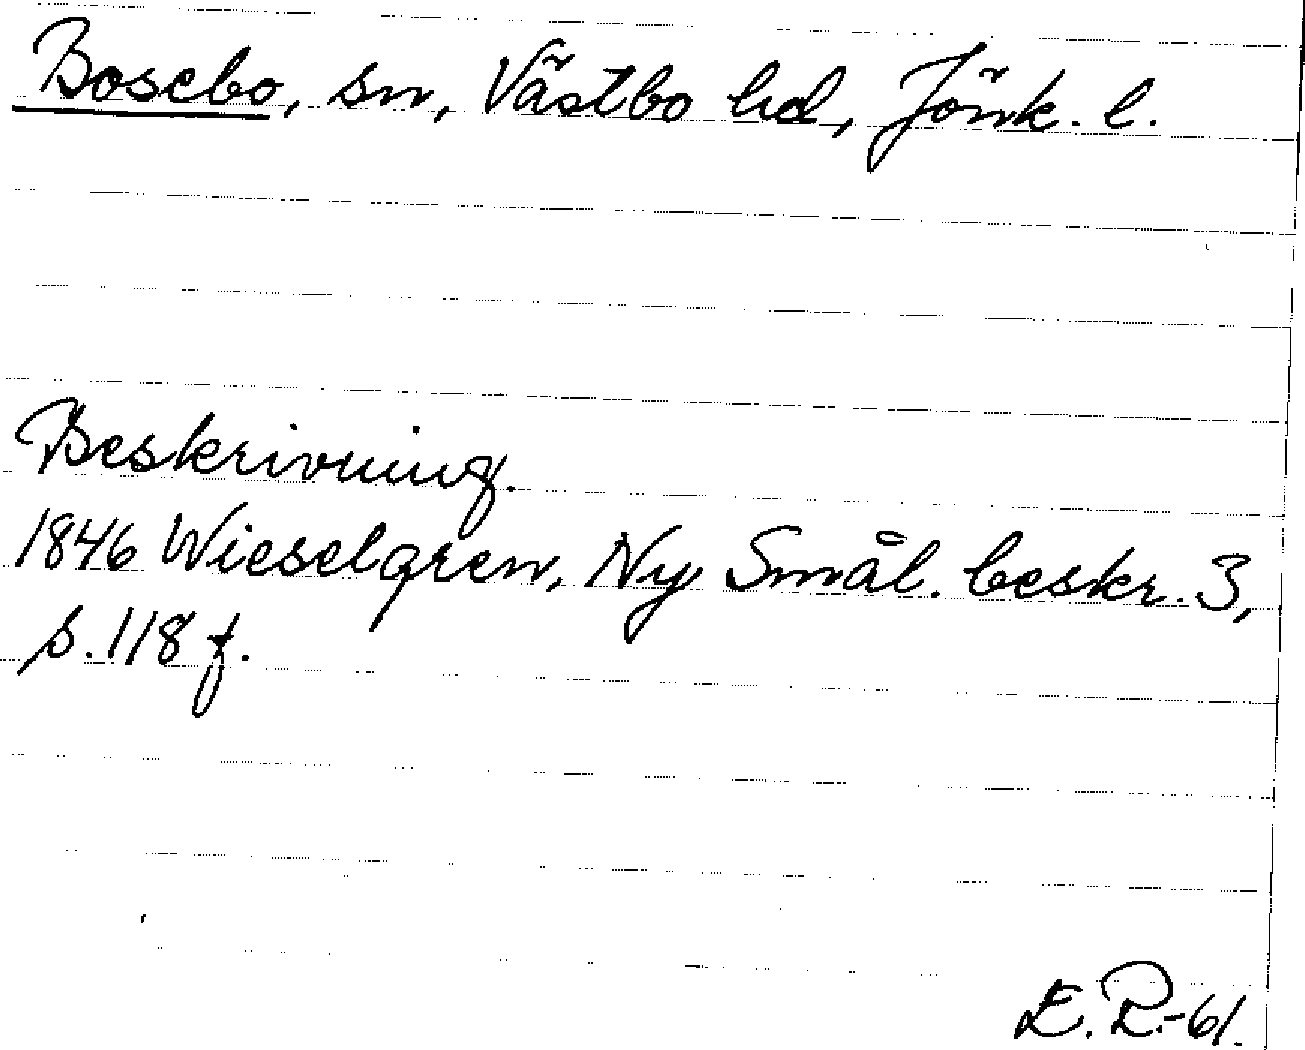 Bosebo, sn, Västbo hd, Jönk. l.
Beskrivning.
1846 Wieselgren, Ny Smål. beskr. 3,
s. 118 f.
E. P. -61.